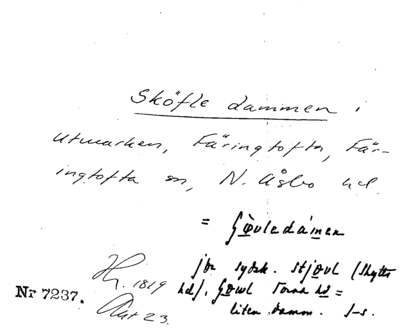 Sköfle dammen i
utmarken, Färingtofta, Fär-
ingtofta sn, N. Åsbo hd.
= 
jfr sydsk. stjøvl (Skytts
hd), Torna hd =
liten damm.
1819
Nr 7237.
Akt 23.